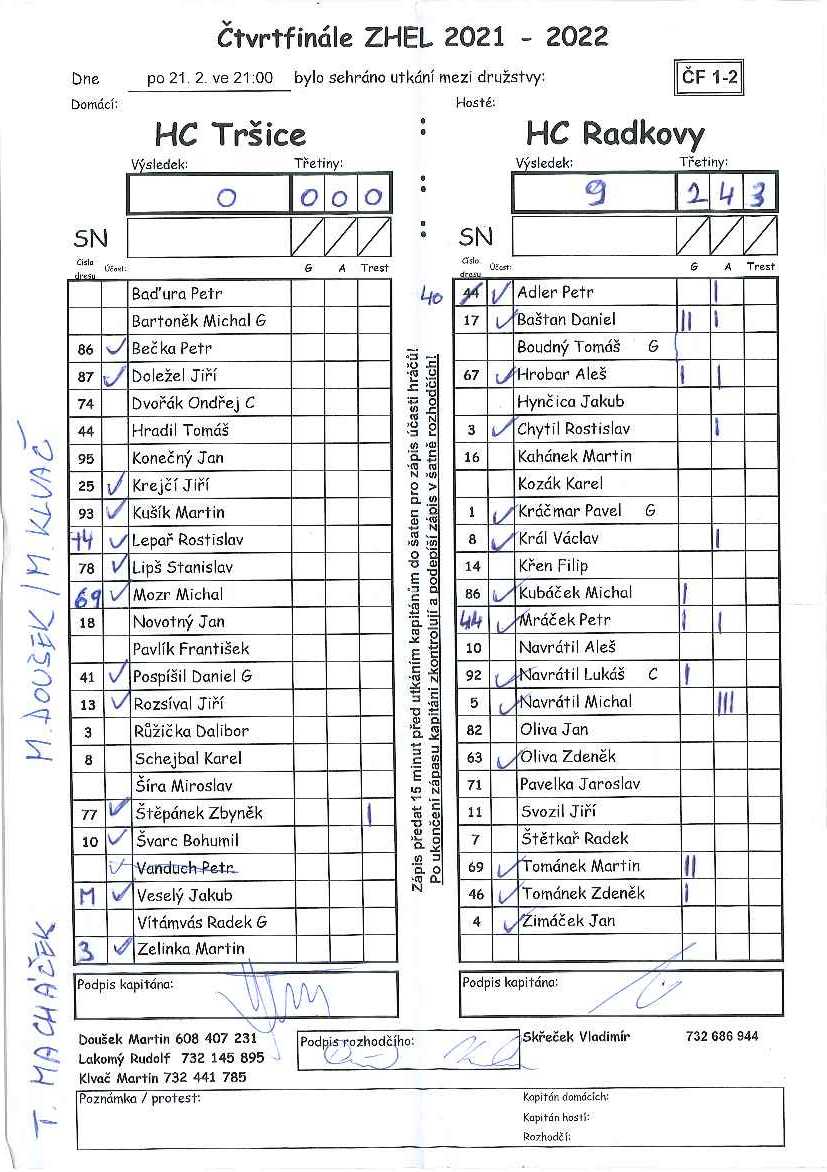 Čtvrtfinále ZHEL 2021 - 2022
Dne po 21. 2. ve 21:00 bylo sehráno utkání mezi družstvy: ČF 1-2
Domácí: Hosté:
HC Tršice : HC Radkovy
Výsledek: Třetiny: Výsledek: Třetiny:
0 0 0 0 : 9 2 4 3
SN : SN
Číslo dresu Účast: G A Trest
Baďura Petr
Bartoněk Michal G
86 ✓ Bečka Petr
87 ✓ Doležel Jiří
74 Dvořák Ondřej C
44 Hradil Tomáš
95 Konečný Jan
25 ✓ Krejčí Jiří
93 ✓ Kušík Martin
14 ✓ Lepař Rostislav
78 ✓ Lipš Stanislav
69 ✓ Mozr Michal
18 Novotný Jan
Pavlík František
41 ✓ Pospíšil Daniel G
13 ✓ Rozsíval Jiří
3 Růžička Dalibor
8 Schejbal Karel
Šíra Miroslav
77 ✓ Štěpánek Zbyněk I
10 ✓ Švarc Bohumil
✓ Vanduch Petr
M ✓ Veselý Jakub
Vítámvás Radek G
3 ✓ Zelinka Martin
Podpis kapitána:
Zápis předat 15 minut před utkáním kapitánům do šaten pro zápis účasti hráčů!
Po ukončení zápasu kapitáni zkontrolují a podepíší zápis v šatně rozhodčích!
Číslo dresu Účast: G A Trest
40 44 ✓ Adler Petr I
17 ✓ Baštan Daniel II I
Boudný Tomáš G
67 ✓ Hrobar Aleš I I
Hynčica Jakub
3 ✓ Chytil Rostislav I
16 Kahánek Martin
Kozák Karel
1 ✓ Kráčmar Pavel G
8 ✓ Král Václav I
14 Křen Filip
86 ✓ Kubáček Michal I
44 ✓ Mráček Petr I I
10 Navrátil Aleš
92 ✓ Navrátil Lukáš C I
5 ✓ Navrátil Michal III
82 Oliva Jan
63 ✓ Oliva Zdeněk
71 Pavelka Jaroslav
11 Svozil Jiří
7 Štětkař Radek
69 ✓ Tománek Martin II
46 ✓ Tománek Zdeněk I
4 ✓ Zimáček Jan
Podpis kapitána:
Doušek Martin 608 407 231
Lakomý Rudolf 732 145 895
Klvač Martin 732 441 785
Podpis rozhodčího:
Skřeček Vladimír 732 686 944
Poznámka / protest:
Kapitán domácích:
Kapitán hostí:
Rozhodčí:
T. MACHÁČEK M. DOUŠEK / M. KLVAČ